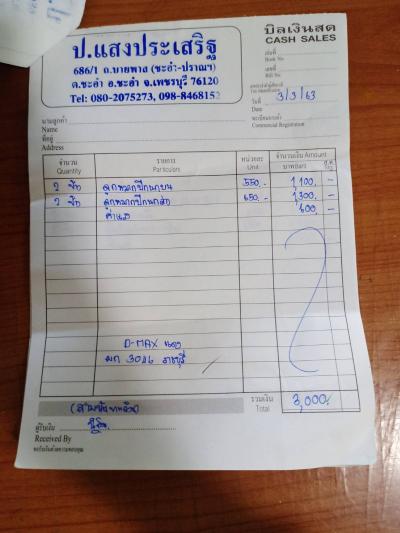 บิลเงินสด
CASH SALES
ป.แสงประเสริฐ
686/1 ถ.บายพาส (ชะอำ-ปราณฯ)
ต.ชะอำ อ.ชะอำ จ.เพชรบุรี 76120
Tel: 080-2075273, 098-8468152
เล่มที่
Book No.
เลขที่
Bill No.
วันที่ 3/3/63
Date
ทะเบียนการค้า
Commercial Registration
นามลูกค้า
Name
ที่อยู่
Address
จำนวน รายการ หน่วยละ จำนวนเงิน Amount
Quantity Particulars Unit บาท(Baht) ส.ต.
2 ลูกหมากปีกนกบน 550.- 1,100.-
2 ลูกหมากปีกนกล่าง 650.- 1,300.-
ค่าแรง 600.-
D-MAX
3046 ราชบุรี
รวมเงิน 3,000.-
Total
(สามพันบาทถ้วน)
ผู้รับเงิน
Received By